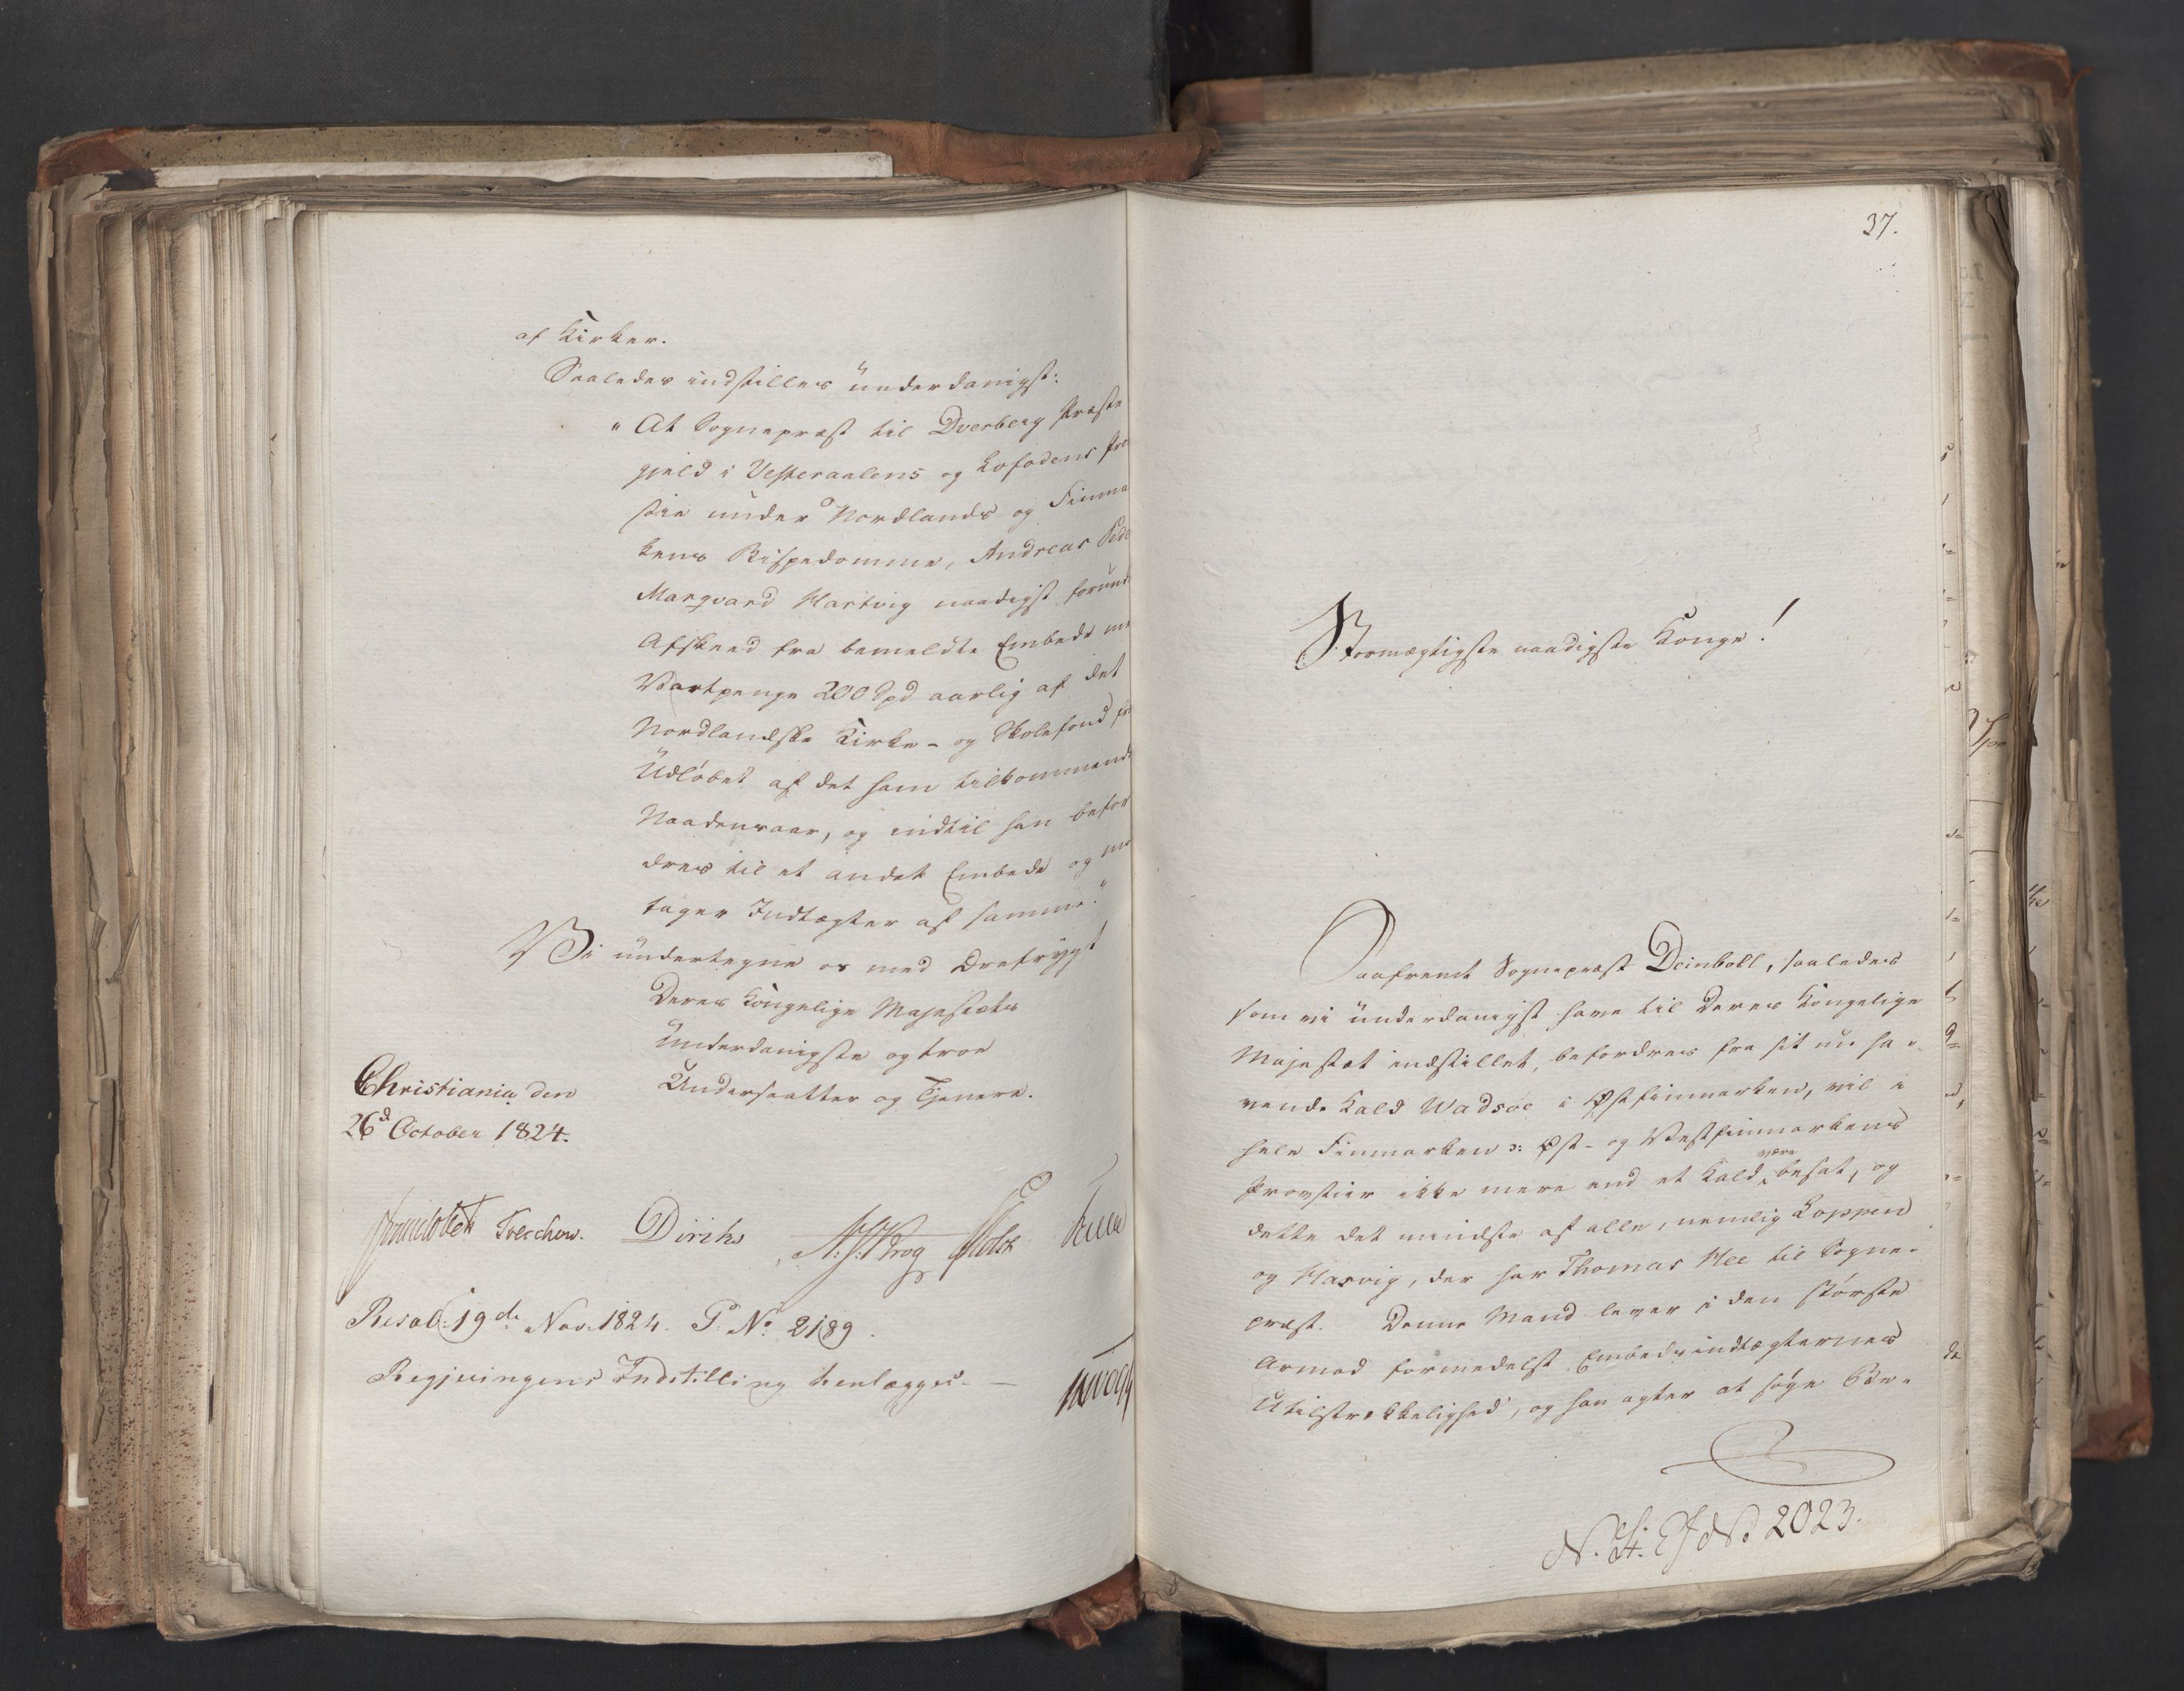 af Kirker.
Saaledes indstilles underdanigst:
"At Sognepræst til Dverberg Præste
gjeld i Vesteraalens og Lofodens Pro
stie under Nordlands og Finma
kens Bispedømme, Andreas Pede
Marqvard Hartvig naadigst forund
Afskeed fra bemeldte Embede me
Vartpenge 200 Spd aarlig af det
Nordlandske Kirke- og Skolefond fra
Udløbet af det ham tilkommende
Naadensaar, og indtil han befor
dres til et andet Embede og mo
tager Indtægter af samme."
Vi undertegne os med Ærefrygt
Deres Kongelige Majestæts
underdanigste og troe
Undersaatter og Tjenere.
Christiania den
26d October 1824.
Treschow. Diriks
Resol: 19de Nov. 1824. P. No 2189.
Regjeringens Indstilling henlægges. —
37.
Stormægtigste naadigste Konge!
Saafremt Sognepræst Deinboll, saaledes
som vi underdanigst have til Deres Kongelige
Majestæt indstillet, befordres fra sit nu ha-
vende Kald Wadsøe i Østfinmarken, vil i
hele Finmarken ɔ: Øst- og Vestfinmarkens
Provstier ikke mere end et Kald være besat, og
dette det mindste af alle, nemlig Loppen
og Hasvig, der har Thomas Hee til Sogne-
præst. Denne Mand lever i den største
Armod formedelst Embedsindtægternes
Utilstrækkelighed, og han agter at søge Be-
2023.